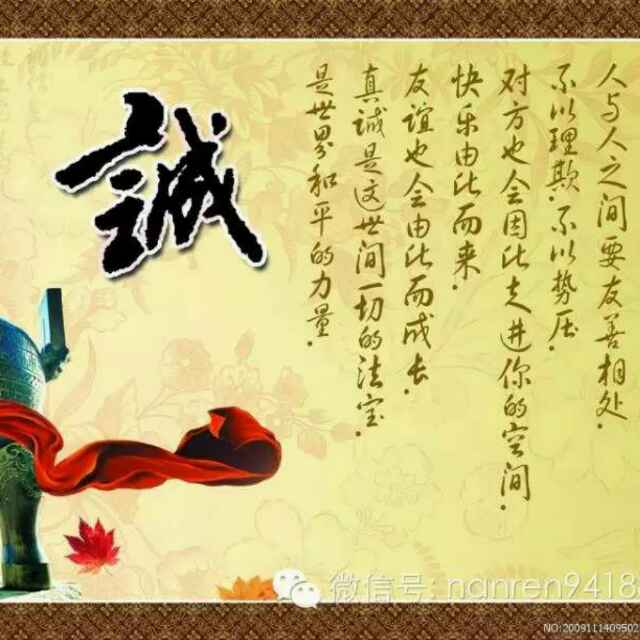 誠
人与人之间要友善相处.
不以理欺.不以势压.
对方也会因此走进你的空间.
快乐由此而来.
友谊也会由此而成长.
真诚是这世间一切的法宝.
是世界和平的力量.
微信号: nanren9418
NO:2009111409502